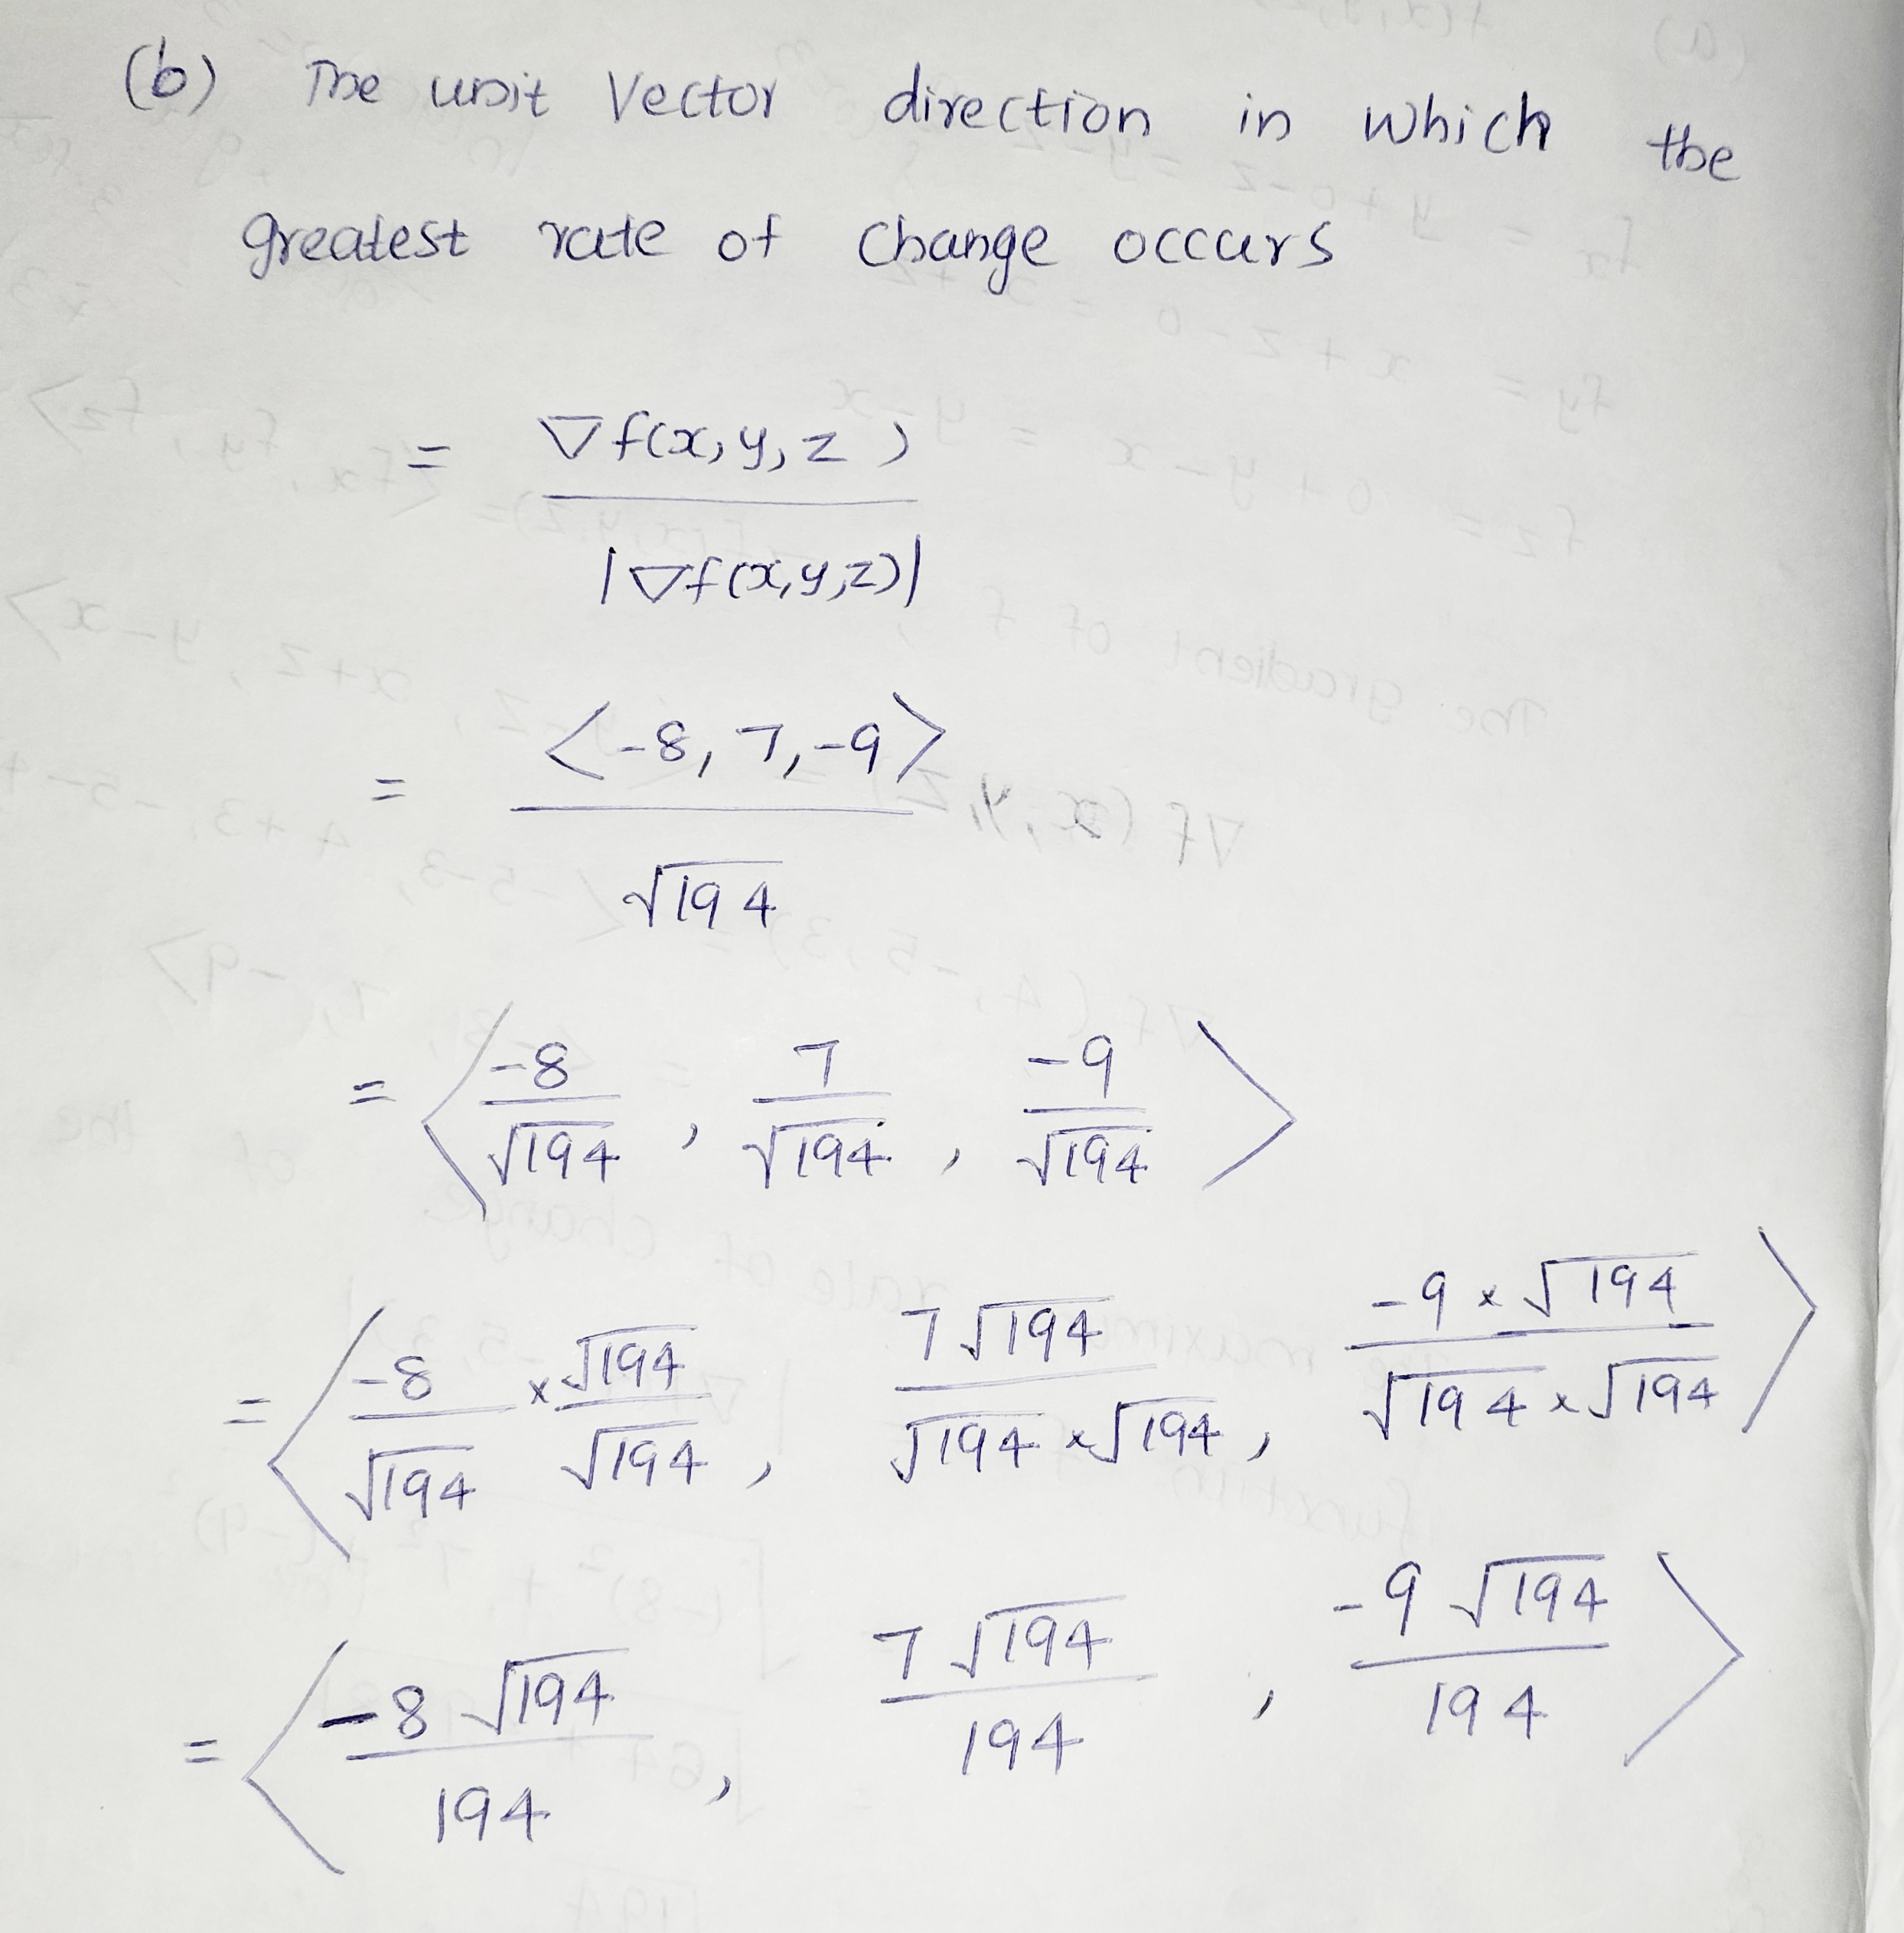 (b) The unit Vector direction in which the
greatest rate of change occurs
= ∇f(x,y,z)
|∇f(x,y,z)|
= <-8, 7, -9>
√194
= < -8/√194 , 7/√194 , -9/√194 >
= < -8/√194 × √194/√194 , 7√194/√194 × √194 , -9 × √194/√194 × √194 >
= < -8√194/194 , 7√194/194 , -9√194/194 >